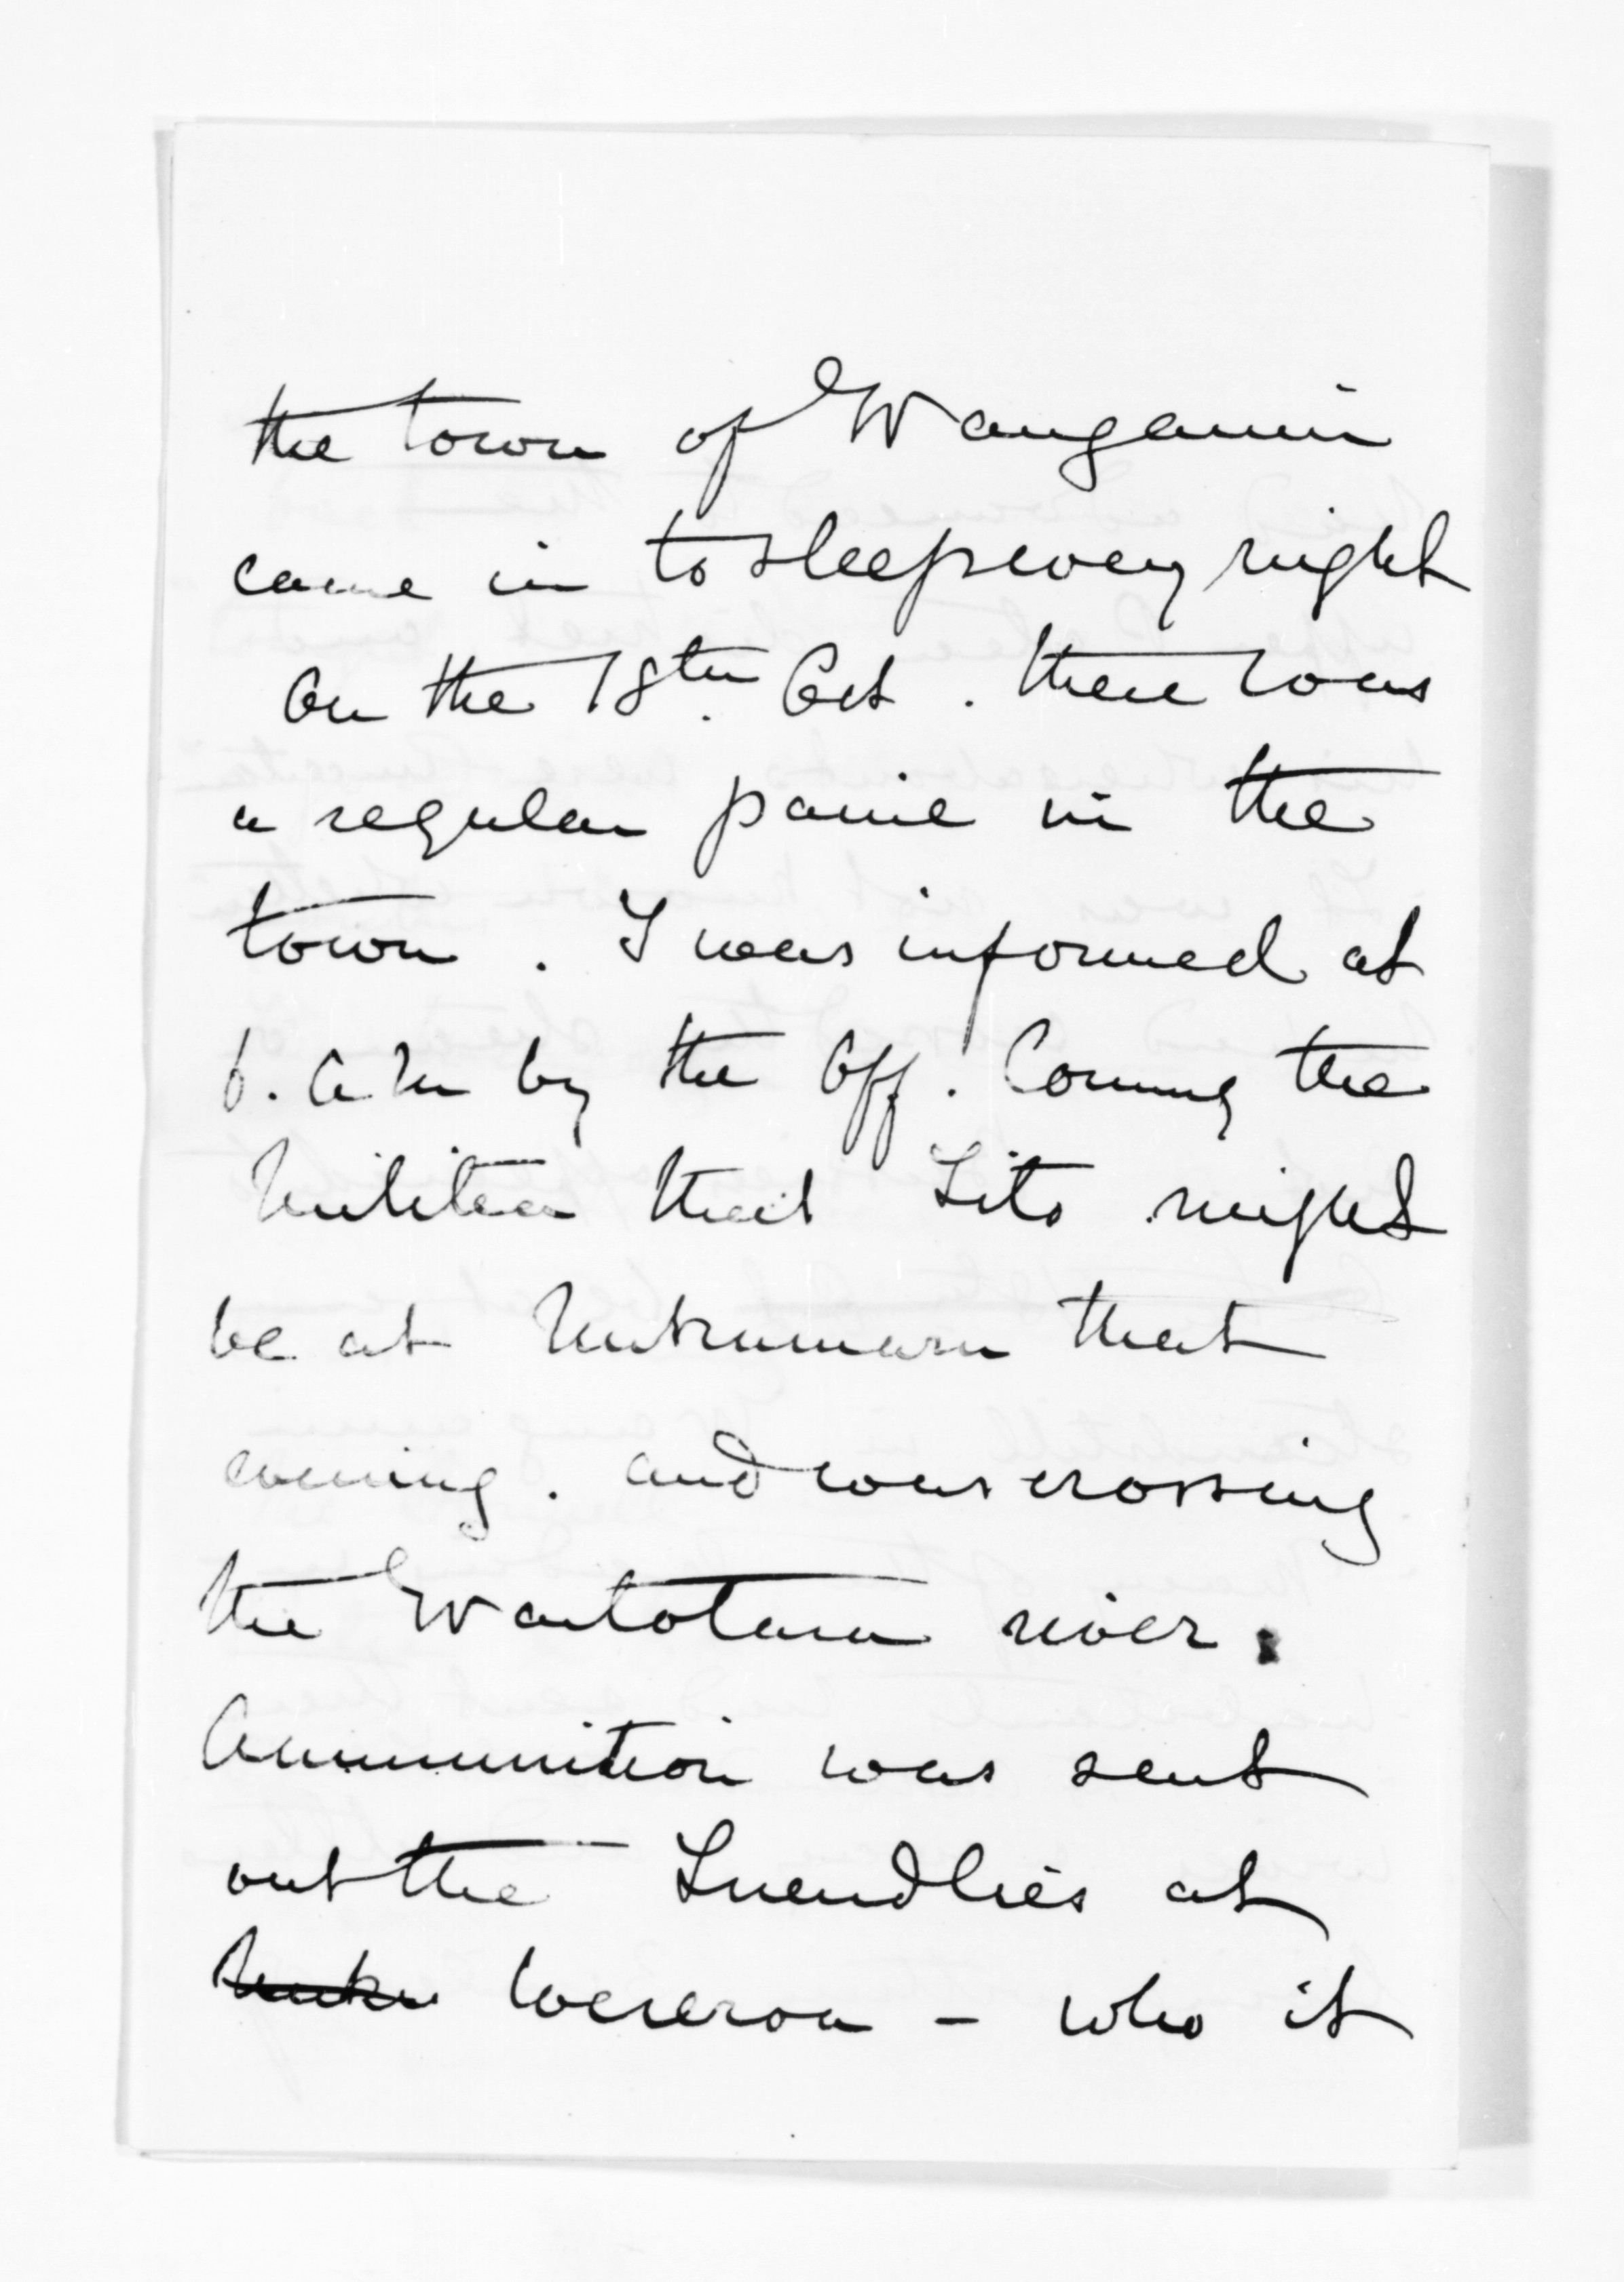 the town of Wanganui
came in to sleep every night
On the 18th. Oct. there was
a regular panic in the
town. I was informed at
6. a m by the Off. Comng the
Militia that Tito might
be at Nukumaru that
evening. and was crossing
the Waitotara river.
Ammunition was sent
out the Friendlies at
Nuku Weraroa - who it